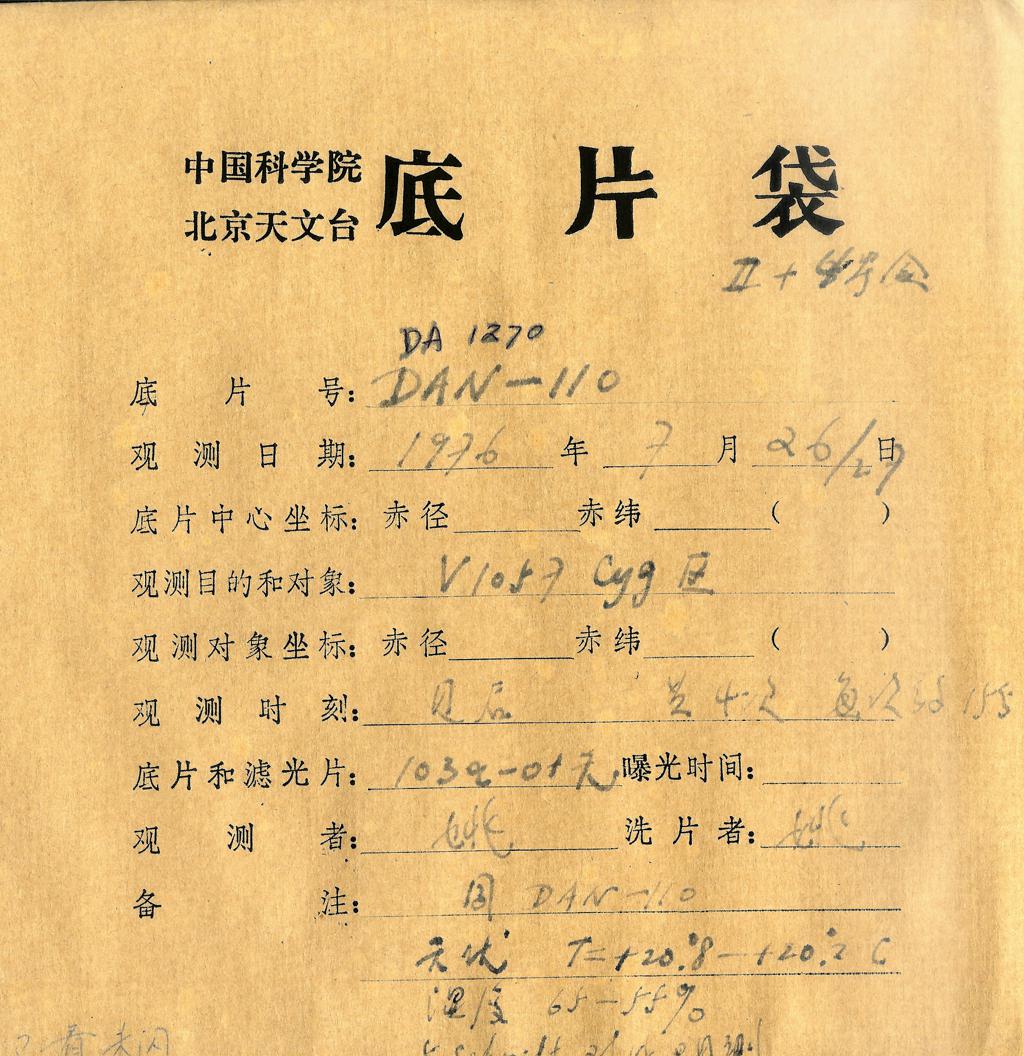 中国科学院
北京天文台
底片袋
II + 4号
DA 1270
底片号: DAN-110
观测日期: 1976 年 7 月 26/27 日
底片中心坐标: 赤径 赤纬 ( )
观测目的和对象: V1057 Cyg 区
观测对象坐标: 赤径 赤纬 ( )
观测时刻: 见后 共4次 每次
底片和滤光片: 103a-O+无 曝光时间:
观测者: 姚 洗片者: 姚
备注: 同 DAN-110
天优 T=+20.°8-+20.°2 C
湿度 65-55%
Schmidt